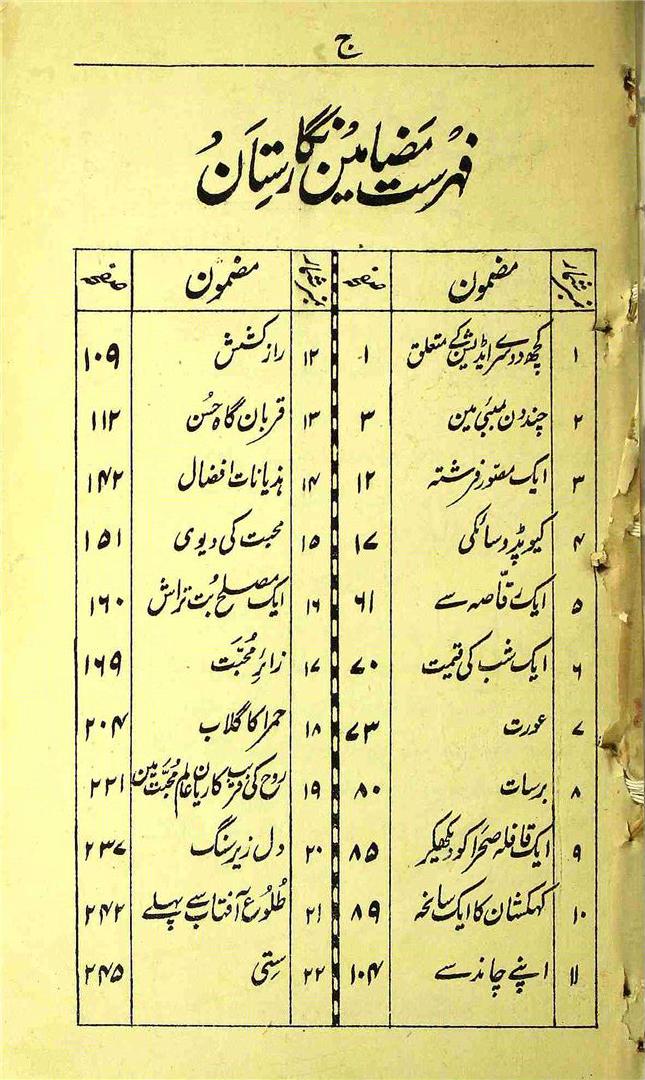 ج
فہرست مضامین نگارستان
نمبر شمار مضمون صفحہ
۱ کچھ دوسرے ایڈیشن کے متعلق ۱
۲ چند دن بمبئی مین ۳
۳ ایک مصور فرشتہ ۱۲
۴ کیوپڈ و سائکی ۱۷
۵ ایک رقاصہ سے ۶۱
۶ ایک شب کی قیمت ۷۰
۷ عورت ۷۳
۸ برسات ۸۰
۹ ایک قافلہ صحرا کو دیکھکر ۸۵
۱۰ کہکشان کا ایک سانحہ ۸۹
۱۱ اپنے چاند سے ۱۰۴
نمبر شمار مضمون صفحہ
۱۲ راز کشش ۱۰۹
۱۳ قربان گاہ حُسن ۱۱۲
۱۴ ہذیانات افضال ۱۴۲
۱۵ محبت کی دیوی ۱۵۱
۱۶ ایک مصلح بُت تراش ۱۶۰
۱۷ زائرِ مُحبَّت ۱۶۹
۱۸ حمرا کا گلاب ۲۰۴
۱۹ روح کی فریب کاریان عالم مُحبّت مین ۲۲۱
۲۰ دل زیر سنگ ۲۳۷
۲۱ طُلوُعِ آفتاب سے پہلے ۲۴۲
۲۲ ستی ۲۴۵